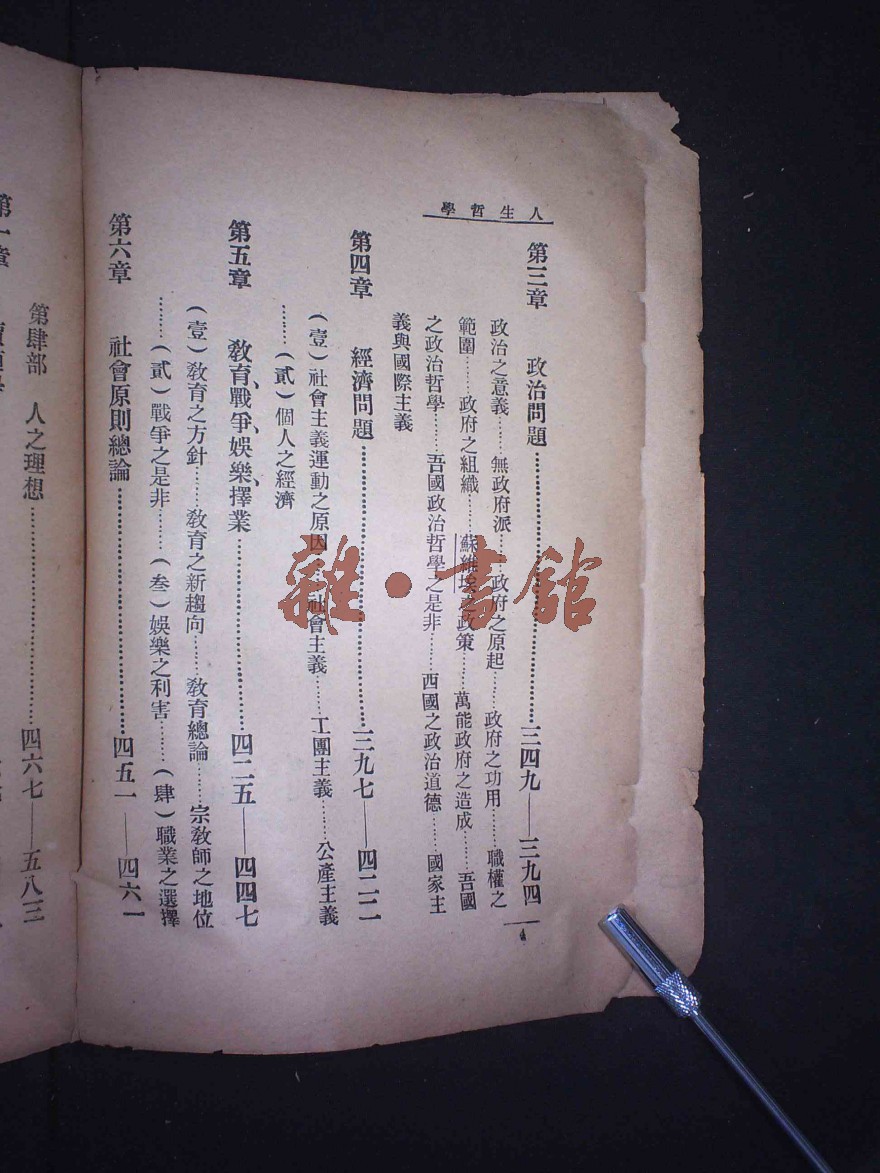 人生哲學
第三章 政治問題……………………三四九——三九四
政治之意義……無政府派……政府之原起……政府之功用……職權之
範圍……政府之組織……蘇維埃之政策……萬能政府之造成……吾國
之政治哲學……吾國政治哲學之是非……西國之政治道德……國家主
義與國際主義
第四章 經濟問題……………………三九七——四二二
(壹)社會主義運動之原因……社會主義……工團主義……公產主義
……(貳)個人之經濟
第五章 教育、戰爭、娛樂、擇業……………………四二五——四四七
(壹)教育之方針……教育之新趨向……教育總論……宗教師之地位
……(貳)戰爭之是非……(叁)娛樂之利害……(肆)職業之選擇
第六章 社會原則總論……………………四五一——四六一
第肆部 人之理想……………………四六七——五八三
第一章
4
雜·書館